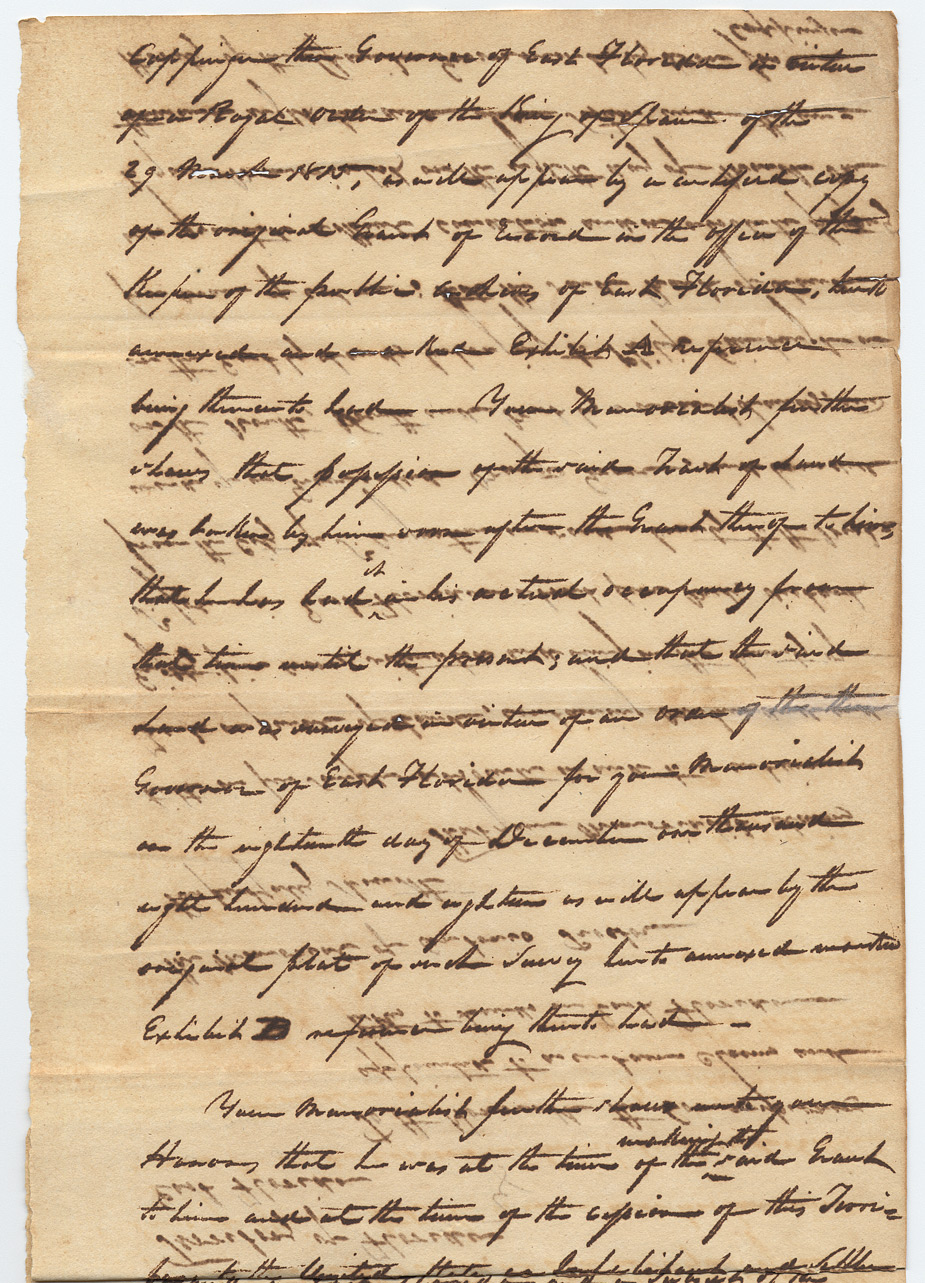 Coppinger then Governor of East Florida in virtue
of a Royal order of the King of Spain of the
29 March 1815, as will appear by a certified copy
of the original Grant of record in the office of the
Keeper of the public Archives of East Florida, hereto
annexed and marked Exhibit A reference
being thereunto had — Your Memorialist further
shews that possession of the said Tract of Land
was taken by him soon after the Grant thereof to him,
that he has had it in his actual occupancy from
that time until the present; and that the said
Land was surveyed in virtue of an order of the then
Governor of East Florida for your Memorialist
on the eighteenth day of December one thousand
eight hundred and eighteen as will appear by the
original plat of such Survey hereto annexed marked
Exhibit B reference being thereto had —
Your Memorialist further shews unto your
Honors that he was at the time of the making of said Grant
to him and at the time of the cession of this Terri=